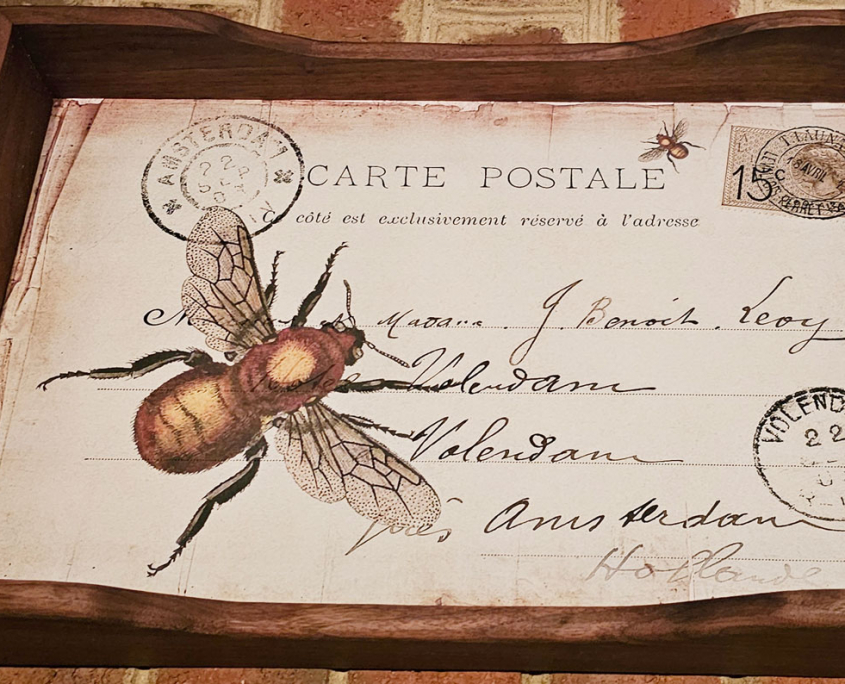 AMSTERDAM
CARTE POSTALE
15
côté est exclusivement réservé à l'adresse
Madame J. Benoit Levy
Hotel Volendam
Volendam
près Amsterdam
Hollande
VOLEND
22